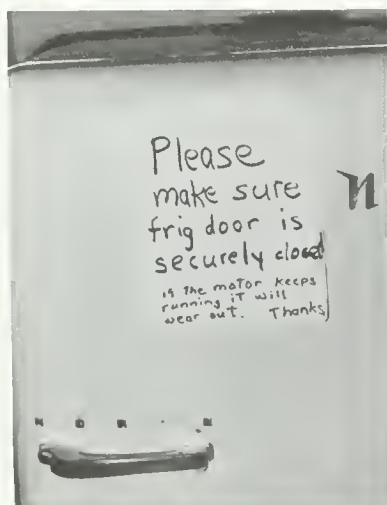 Please
make sure
frig door is
securely closed
if the motor keeps
running it will
wear out. Thanks
n